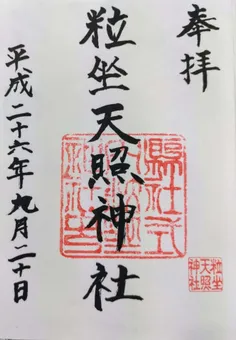 奉拝
粒坐天照神社
平成二十六年九月二十日
粒坐
天照
神社